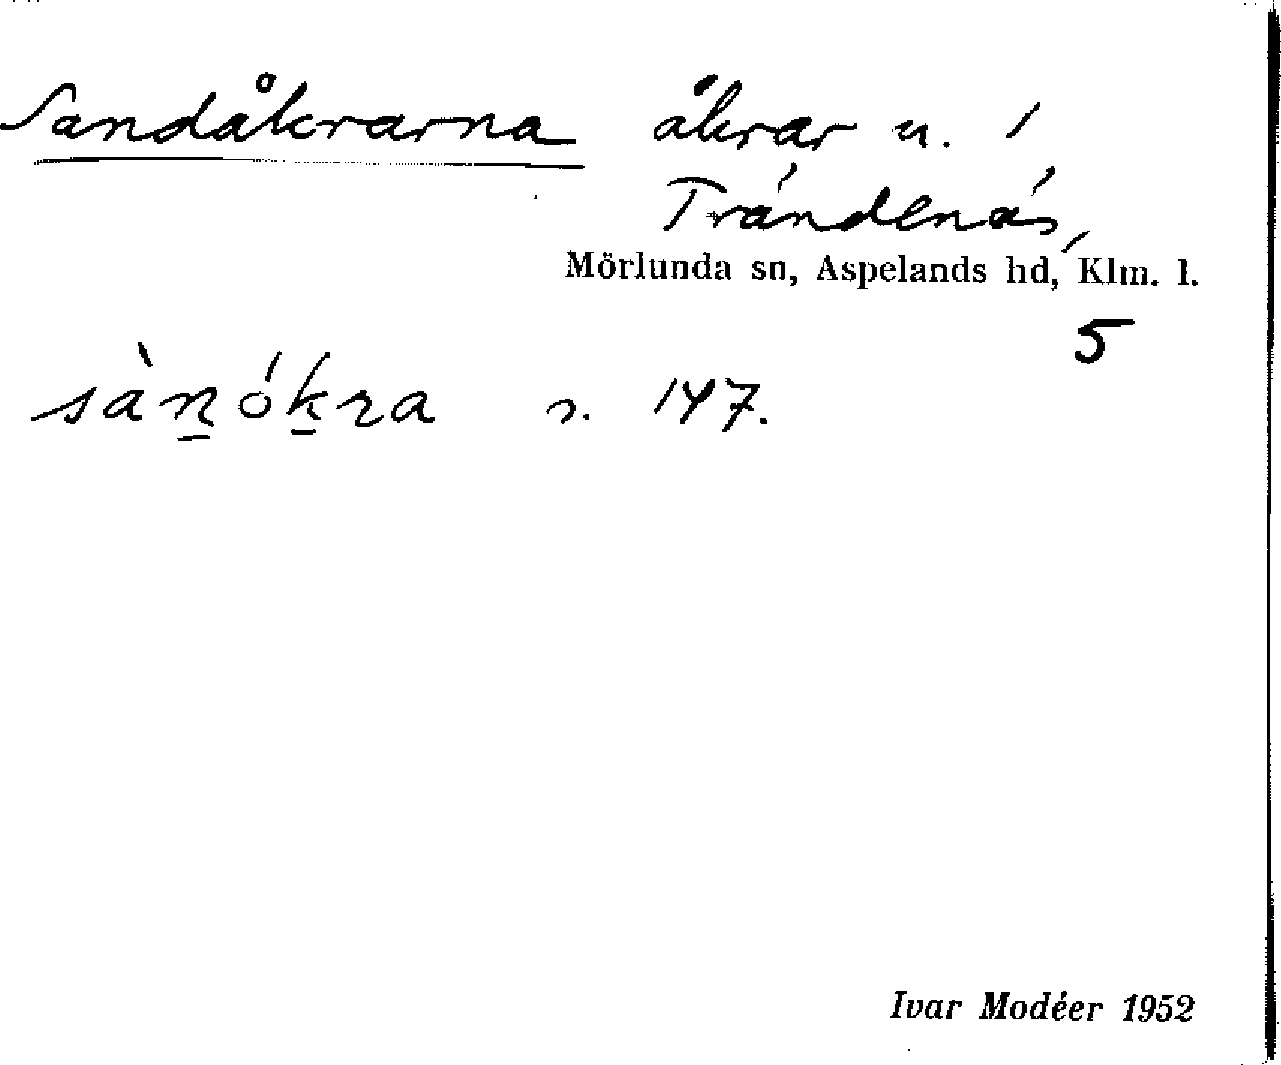 Sandåkrarna åkrar u. 1
Trändenäs,
Mörlunda sn, Aspelands hd, Klm. l.
5
sàn̲ók̲ra s. 147.
Ivar Modéer 1952